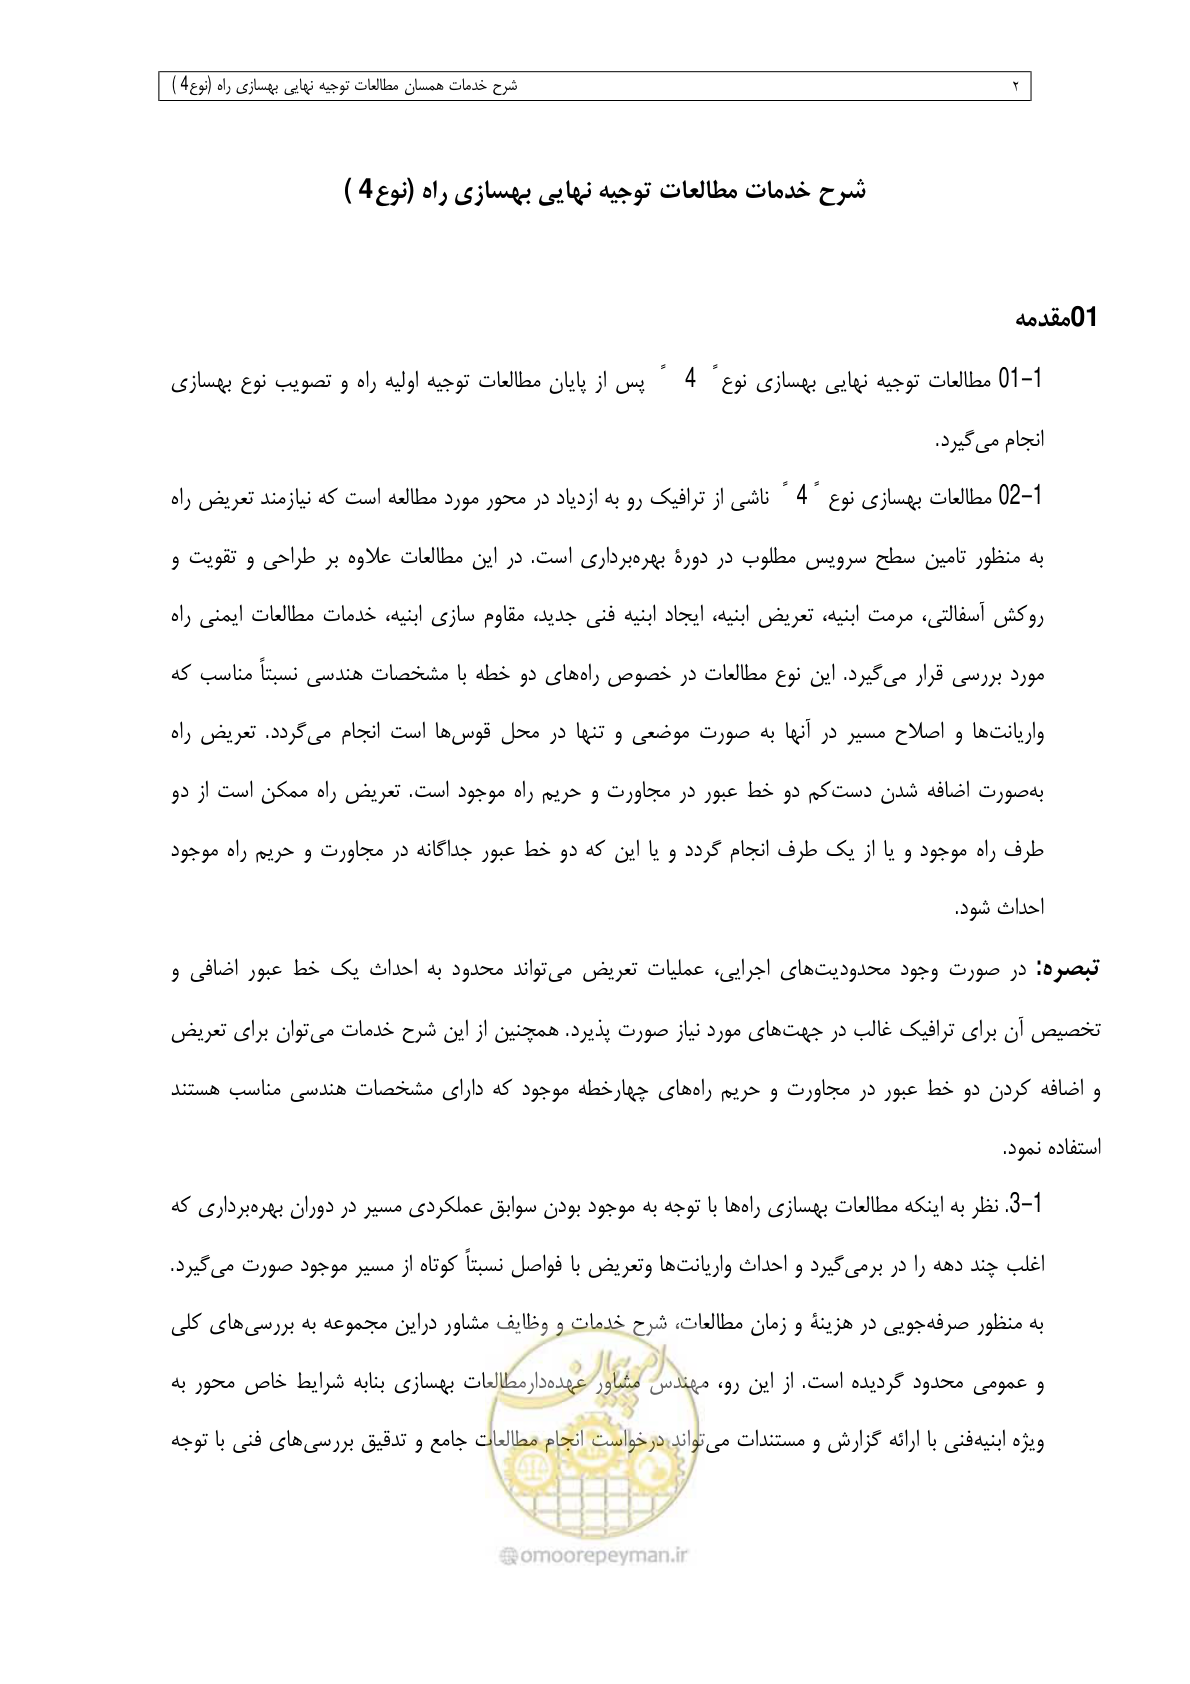 ۲ شرح خدمات همسان مطالعات توجیه نهایی بهسازی راه (نوع4 )
شرح خدمات مطالعات توجیه نهایی بهسازی راه (نوع4 )
01مقدمه
01-1 مطالعات توجیه نهایی بهسازی نوع ً 4 ً پس از پایان مطالعات توجیه اولیه راه و تصویب نوع بهسازی
انجام می‌گیرد.
02-1 مطالعات بهسازی نوع ً 4 ً ناشی از ترافیک رو به ازدیاد در محور مورد مطالعه است که نیازمند تعریض راه
به منظور تامین سطح سرویس مطلوب در دورۀ بهره‌برداری است. در این مطالعات علاوه بر طراحی و تقویت و
روکش آسفالتی، مرمت ابنیه، تعریض ابنیه، ایجاد ابنیه فنی جدید، مقاوم سازی ابنیه، خدمات مطالعات ایمنی راه
مورد بررسی قرار می‌گیرد. این نوع مطالعات در خصوص راه‌های دو خطه با مشخصات هندسی نسبتاً مناسب که
واریانت‌ها و اصلاح مسیر در آنها به صورت موضعی و تنها در محل قوس‌ها است انجام می‌گردد. تعریض راه
به‌صورت اضافه شدن دست‌کم دو خط عبور در مجاورت و حریم راه موجود است. تعریض راه ممکن است از دو
طرف راه موجود و یا از یک طرف انجام گردد و یا این که دو خط عبور جداگانه در مجاورت و حریم راه موجود
احداث شود.
تبصره: در صورت وجود محدودیت‌های اجرایی، عملیات تعریض می‌تواند محدود به احداث یک خط عبور اضافی و
تخصیص آن برای ترافیک غالب در جهت‌های مورد نیاز صورت پذیرد. همچنین از این شرح خدمات می‌توان برای تعریض
و اضافه کردن دو خط عبور در مجاورت و حریم راه‌های چهارخطه موجود که دارای مشخصات هندسی مناسب هستند
استفاده نمود.
3-1. نظر به اینکه مطالعات بهسازی راه‌ها با توجه به موجود بودن سوابق عملکردی مسیر در دوران بهره‌برداری که
اغلب چند دهه را در برمی‌گیرد و احداث واریانت‌ها وتعریض با فواصل نسبتاً کوتاه از مسیر موجود صورت می‌گیرد.
به منظور صرفه‌جویی در هزینۀ و زمان مطالعات، شرح خدمات و وظایف مشاور دراین مجموعه به بررسی‌های کلی
و عمومی محدود گردیده است. از این رو، مهندس مشاور عهده‌دارمطالعات بهسازی بنابه شرایط خاص محور به
ویژه ابنیه‌فنی با ارائه گزارش و مستندات می‌تواند درخواست انجام مطالعات جامع و تدقیق بررسی‌های فنی با توجه
امور پیمان
@omoorepeyman.ir